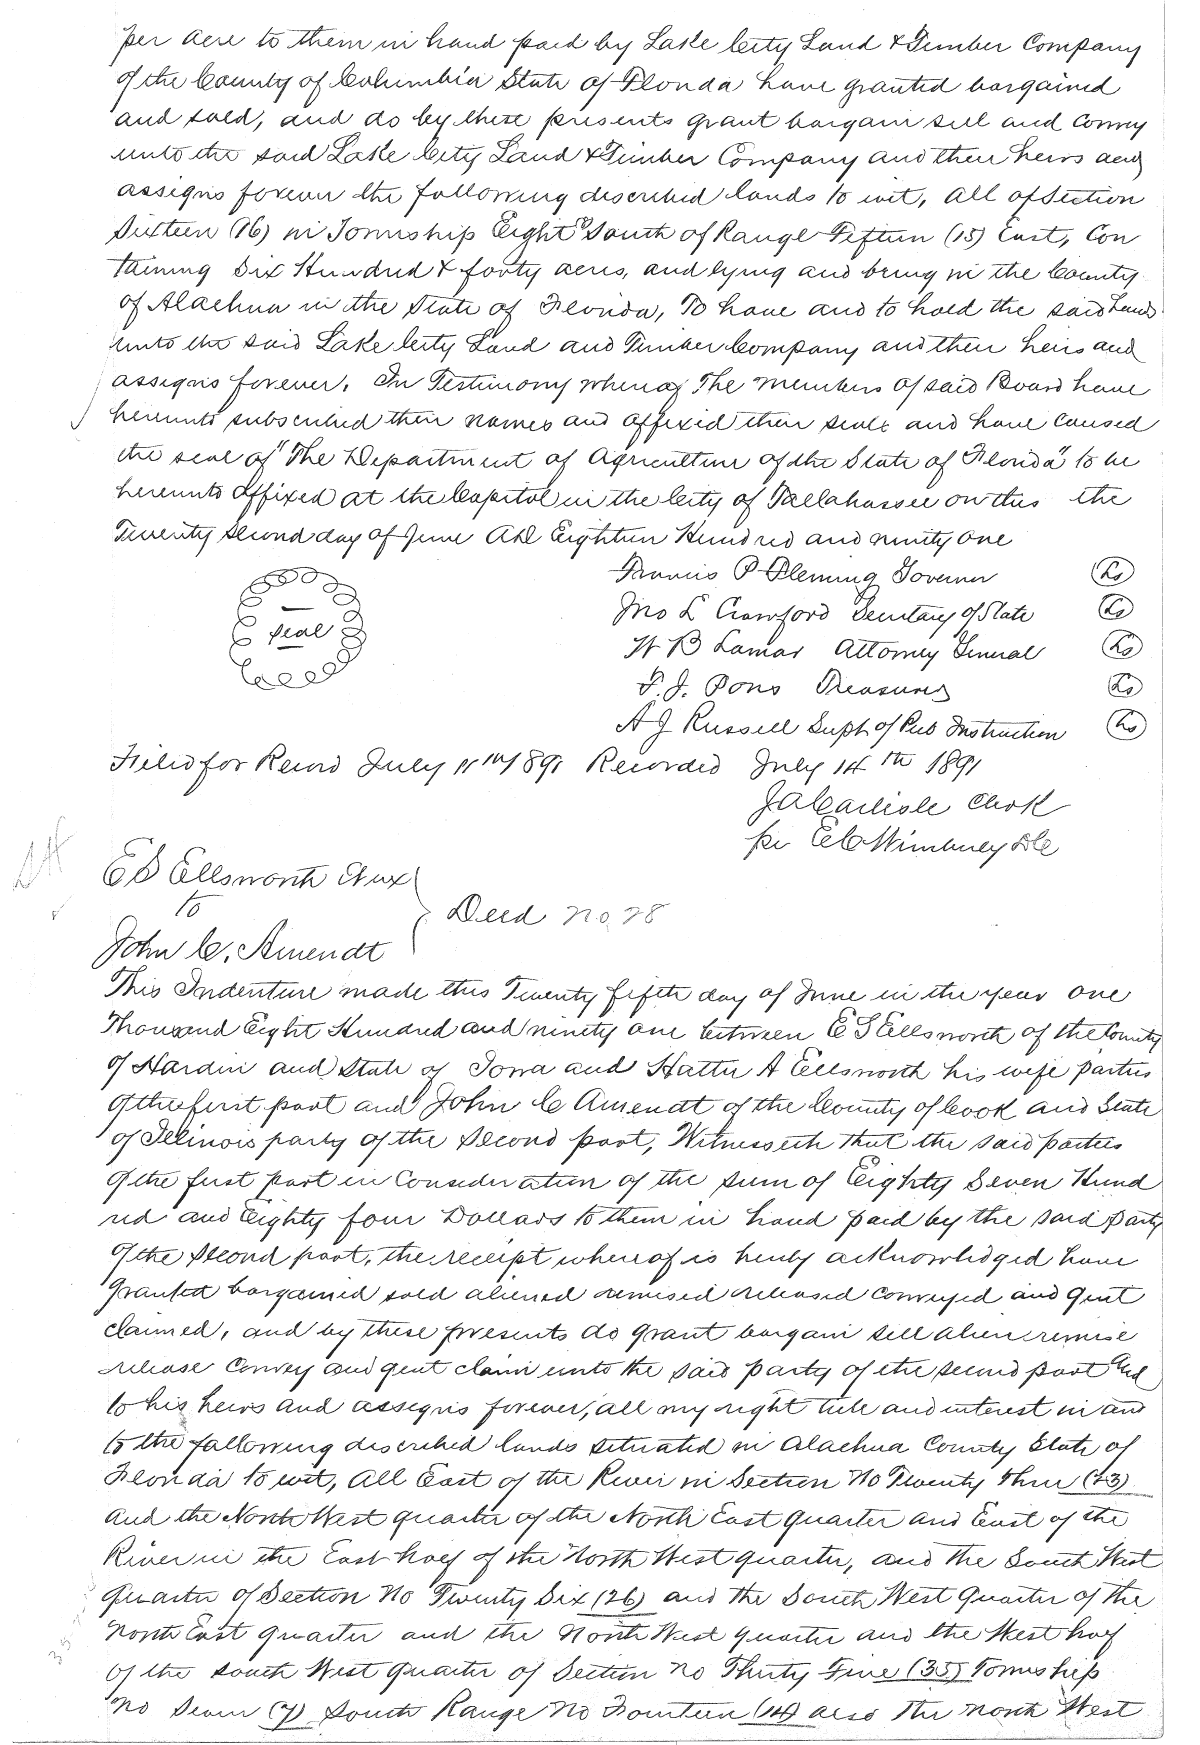 per acre to them in hand paid by Lake City Land & Timber Company
of the County of Columbia State of Florida have granted bargained
and sold, and do by these presents grant bargain sell and convey
unto the said Lake City Land & Timber Company and their heirs and
assigns forever the following described lands to wit, All of Section
Sixteen (16) in Township Eight 8 South of Range Fifteen (15) East, Con
taining Six Hundred & forty acres, and lying and being in the County
of Alachua in the State of Florida, To have and to hold the said Lands
unto the said Lake City Land and Timber Company and their heirs and
assigns forever. In Testimony whereof The members of said Board have
hereunto subscribed their names and affixed their seals and have caused
the seal of "The Department of Agriculture of the State of Florida" to be
hereunto affixed at the Capitol in the City of Tallahassee on this the
Twenty second day of June AD Eighteen Hundred and ninety one
Francis P Fleming Governor (LS)
Jno L Crawford Secretary of State (LS)
W B Lamar Attorney General (LS)
seal
F. J. Pons Treasurer (LS)
A J Russell Supt of Pub Instruction (LS)
Filed for Record July 11th 1891 Recorded July 14th 1891
J A Carlisle Clerk
per E C Wimberley DC
E S Ellsworth & ux
to
Deed No. 28
John C. Amendt
This Indenture made this Twenty fifth day of June in the year one
Thousand Eight Hundred and ninety one between E S Ellsworth of the County
of Hardin and State of Iowa and Hattie A Ellsworth his wife parties
of the first part and John C Amendt of the County of Cook and State
of Illinois party of the second part, Witnesseth that the said parties
of the first part in Consideration of the sum of Eighty Seven Hund
red and Eighty four Dollars to them in hand paid by the said party
of the second part, the receipt whereof is hereby acknowledged have
granted bargained sold aliened remised released conveyed and quit
claimed, and by these presents do grant bargain sell alien remise
release convey and quit claim unto the said party of the second part and
to his heirs and assigns forever, all my right title and interest in and
to the following described lands situated in Alachua County State of
Florida to wit, All East of the River in Section No Twenty Three (23)
and the North West quarter of the North East Quarter and East of the
River in the East half of the North West quarter, and the South West
quarter of Section No Twenty Six (26) and the South West Quarter of the
North East quarter and the North West quarter and the West half
of the South West quarter of Section No Thirty Five (35) Township
No Seven (7) South Range No Fourteen (14) also the North West